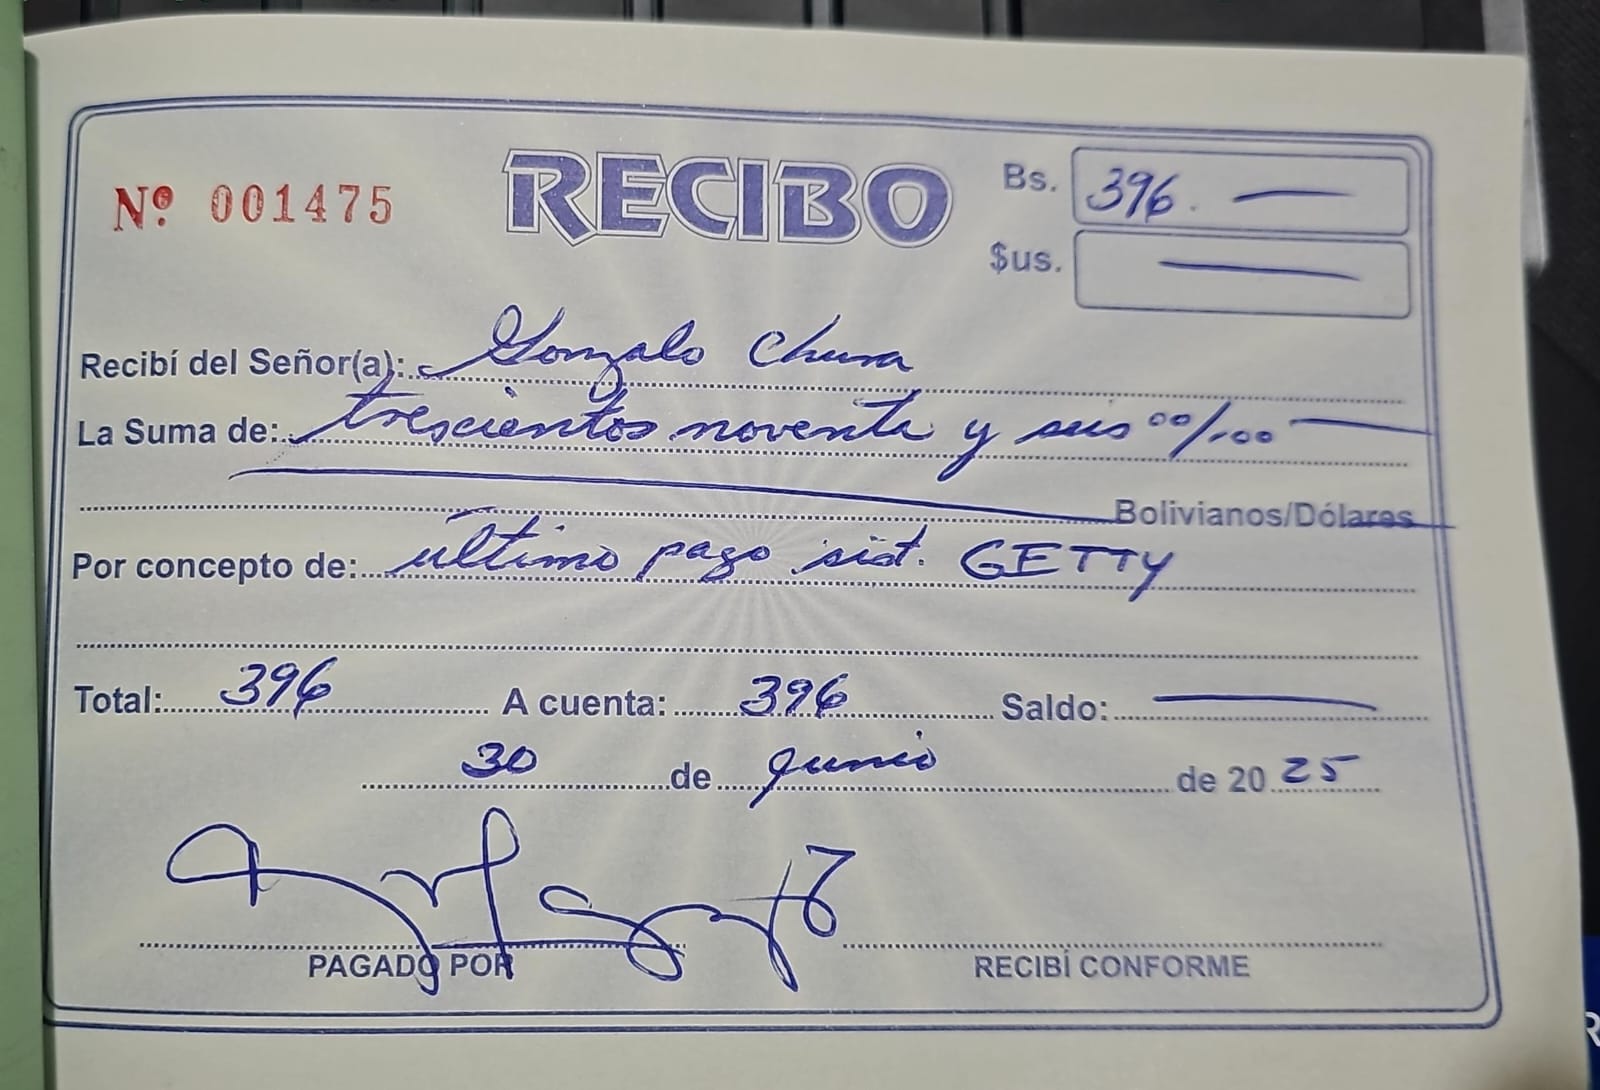 Nº 001475
RECIBO
Bs. 396.
$us.
Recibí del Señor(a): Gonzalo Chura
La Suma de: trescientos noventa y seis 00/100
Bolivianos/Dólares
Por concepto de: último pago sist. GETTY
Total: 396 A cuenta: 396 Saldo:
30 de junio de 20 25
PAGADO POR RECIBÍ CONFORME